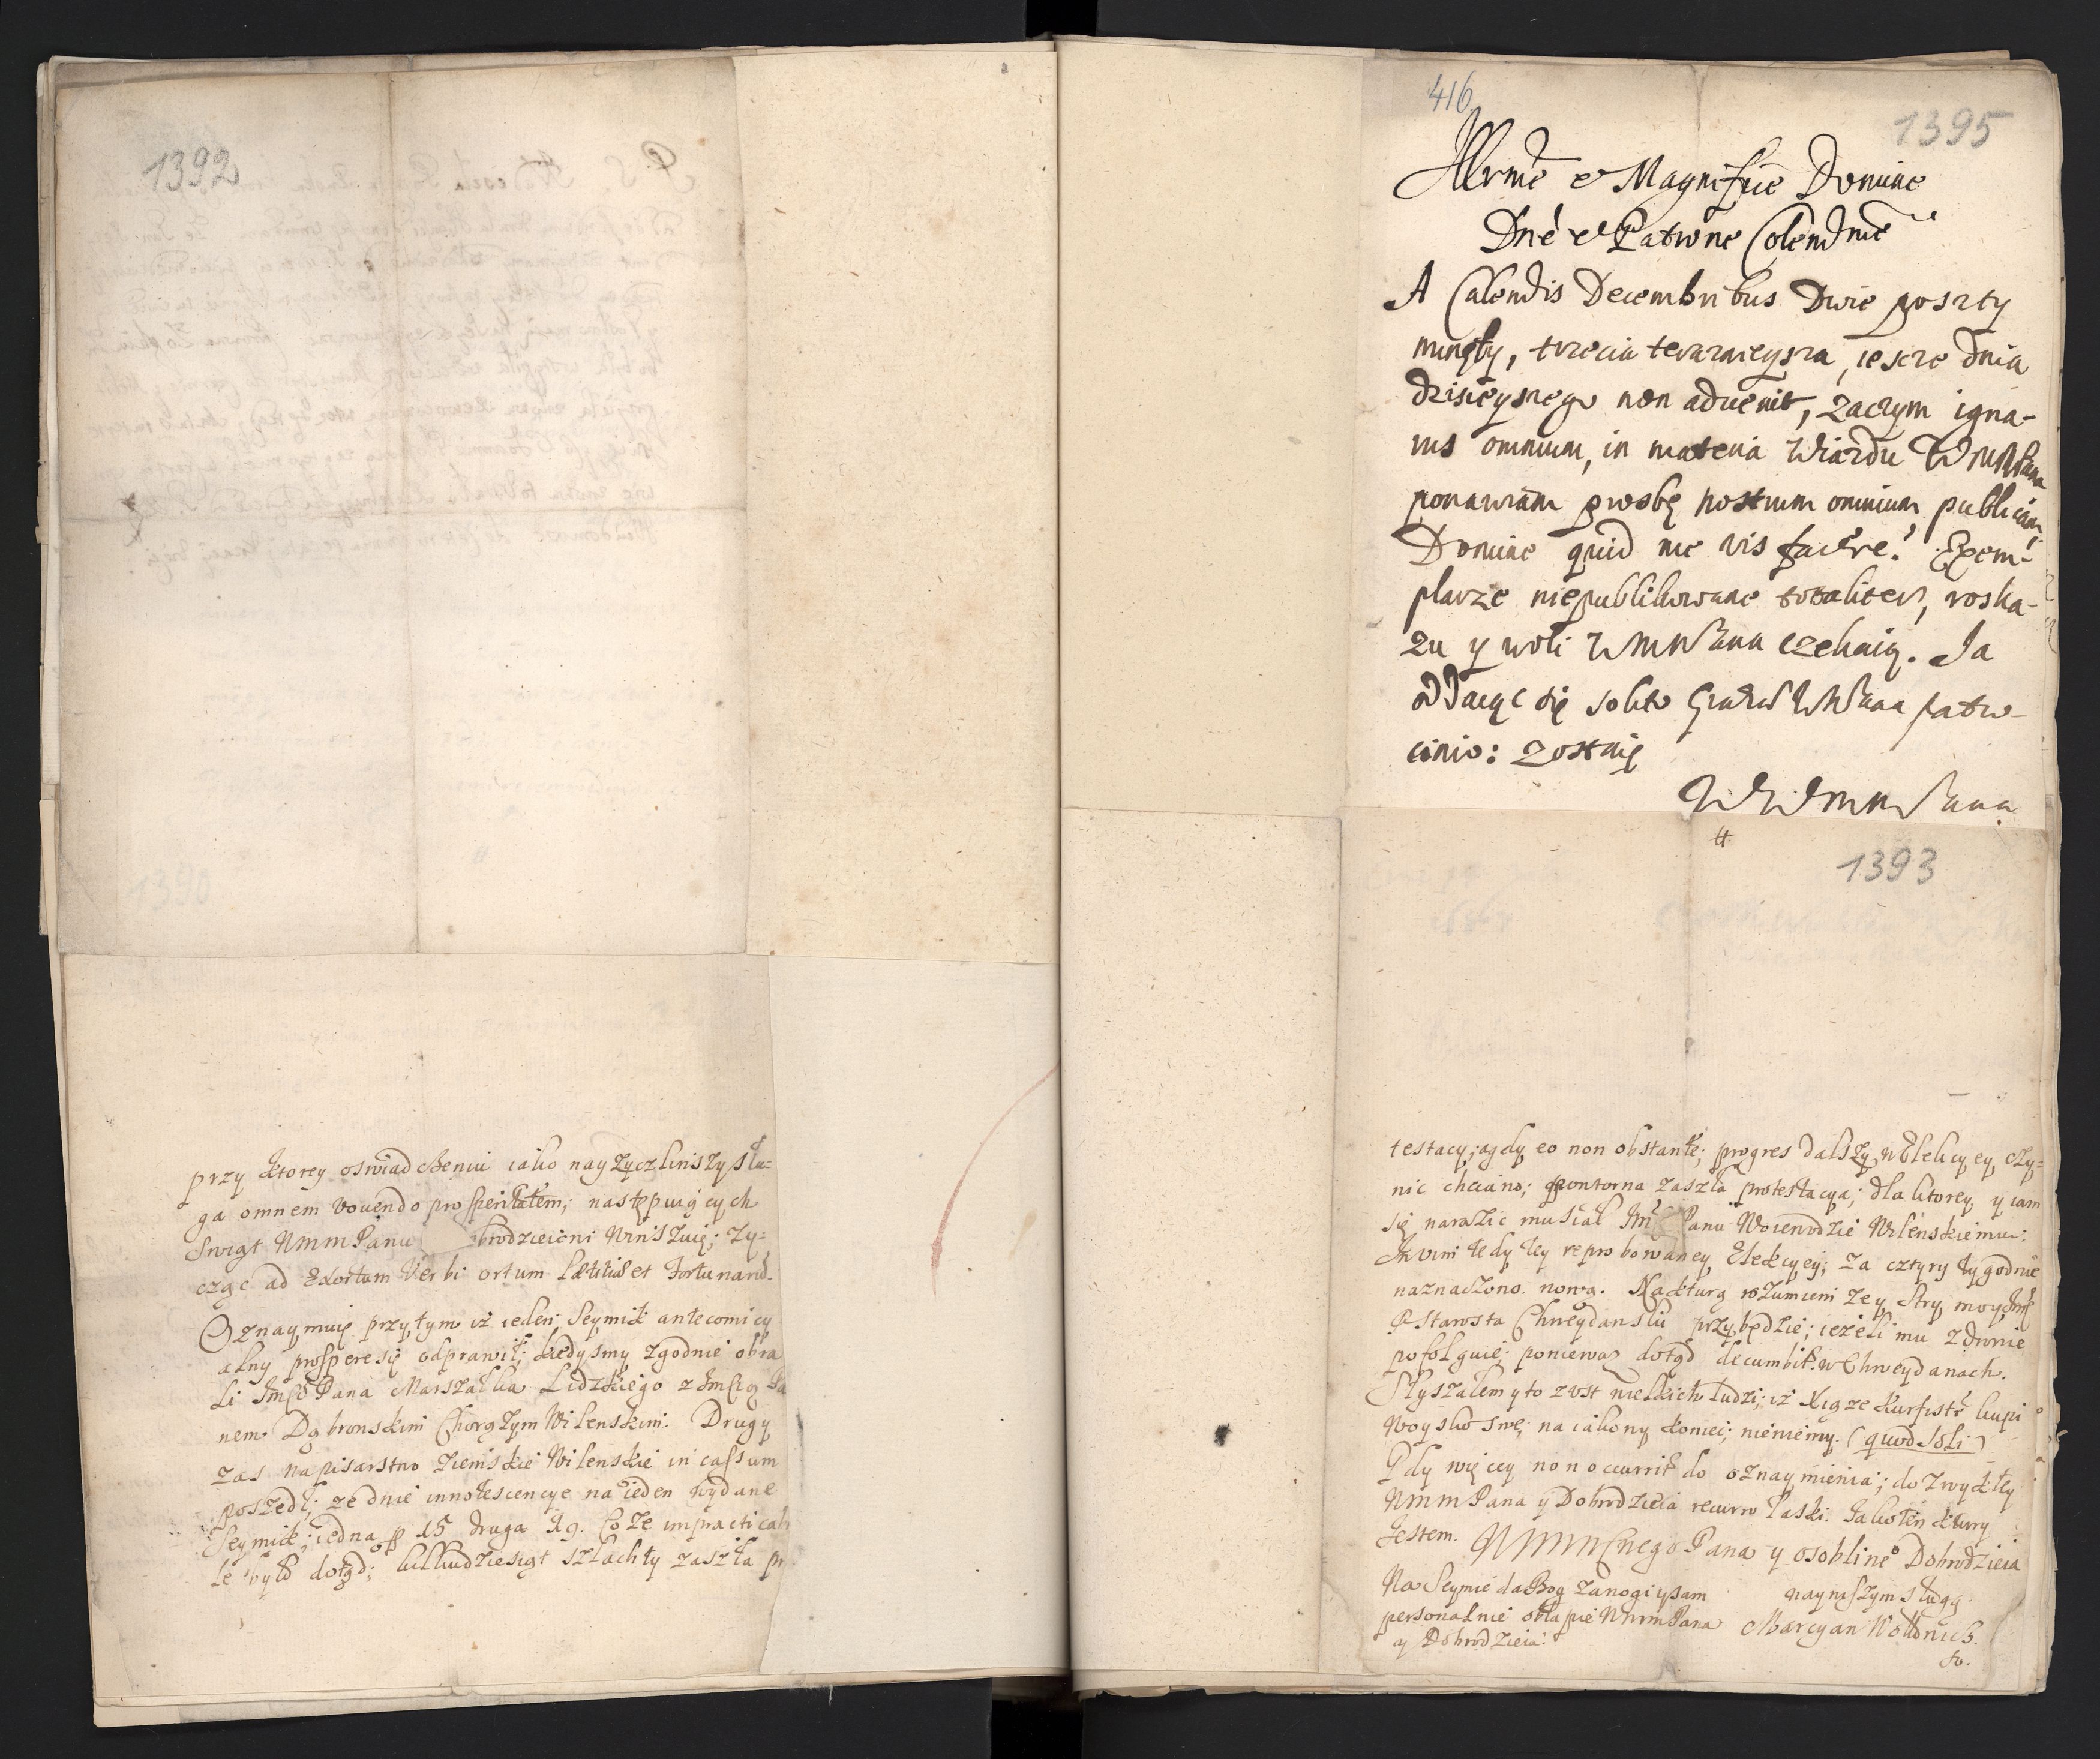 1392
przy ktorey oswiadcheniu iako nayżyczliwszy słu=
ga omnem vovendo prosperitatem; następuiących
Swiąt WmmPanu brodzieiowi Winszuię; ży=
cząc ad Exortum Verbi ortum lætitiæ et Fortunarū.
Oznaymuię przytym iż ieden Seymik antecomicy
alny prospere się odprawił; kiedysmy zgodnie obra
li Jmści Pana Marszałka Lidzkiego z Jmścią Pa
nem Dąbronskim Chorążym Wilenskim. Drugy
zas na pisarstwo Ziemskie Wilenskie in cassum
poszedł; ze dwie innotescencye na ieden wydane
Seymik; iedna p 15 druga 19. Co że impracticabi
le było dotąd; kilkudziesiąt szlachty zaszła pr
416
1395
Illrme et Magnifice Domine
Dne et Patrone Colendme
A Calendis Decembribus Dwie poszty
minęły, trzecia terazneysza, iescze dnia
dzisieyszego non advenit, zaczym igna-
rus omnium, in materia Wiazdu WMMPana
ponawiam prosbę nostrum omnium publicam,
Domine quid me vis facere? Exem-
plarze niepublikowane totaliter, roska-
zu y woli WMMPana czekaią. Ja
oddaiąc się solito WMPana patro-
cinio: zostaię
WWMMPana
1393
testacy; a gdy eo non obstante; progres dalszy w Elekcyey czy=
nic chciano; powtorna zaszła protestacya; dla ktorey y iam
się narazic musiał Jmć Panu Woiewodzie Wilenskiemu:
In vim tedy tey reprobowaney Elekcyey; za cztyry tygodnie
naznaczono nową. Na kturą rozumiem ze y Stry moy Jmć
P Starosta Chweydanski przybędzie; ieżeli mu zdrowie
pofolguie; poniewaz dotąd decumbit w Chweydanach.
Słyszałem y to z ust wielkich ludzi; iż Xiąze Kurfistr kupi
woysko swe; na iakowy koniec; niewiemy. (quod soli)
Gdy więcey non occurrit do oznaymienia; do zwykłey
WmmPana y Dobrodzieia recurro łaski. Jako ten ktury
Jestem. WMMMCnego Pana y osobliwego Dobrodzieia
Na Seymie da Bog zanogi ysam
personalnie obłapię WmmPana
y Dobrodzieia.
naynisszym sługą
Marcyan Wołłowicz